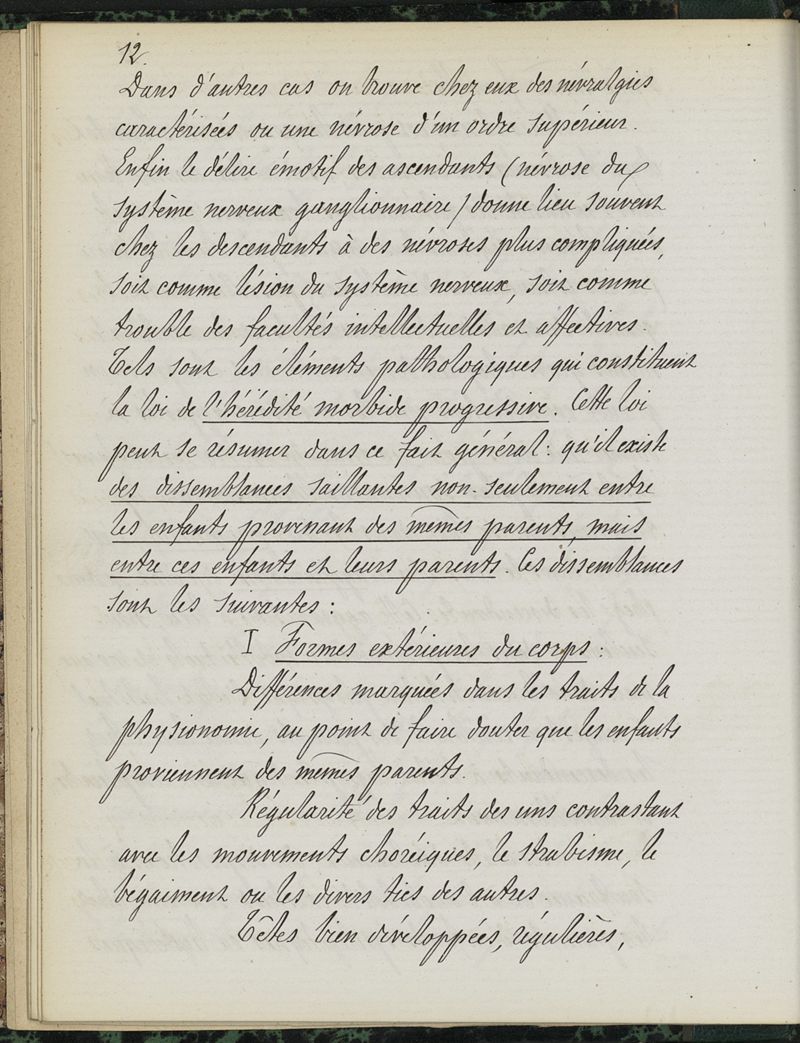 12.
Dans d'autres cas on trouve chez eux des névralgies
caractérisées ou une névrose d'un ordre supérieur.
Enfin le délire émotif des ascendants (névrose du
système nerveux ganglionnaire) donne lieu souvent
chez les descendants à des névroses plus compliquées,
soit comme lésion du système nerveux, soit comme
trouble des facultés intellectuelles et affectives.
Tels sont les éléments pathologiques qui constituent
la loi de l'hérédité morbide progressive. Cette loi
peut se résumer dans ce fait général: qu'il existe
des dissemblances saillantes non-seulement entre
les enfants provenant des mêmes parents, mais
entre ces enfants et leurs parents. Ces dissemblances
sont les suivantes:
I Formes extérieures du corps:
Différences marquées dans les traits de la
physionomie, au point de faire douter que les enfants
proviennent des mêmes parents.
Régularité des traits des uns contrastant
avec les mouvements choréiques, le strabisme, le
bégaiment ou les divers tics des autres.
Têtes bien développées, régulières,